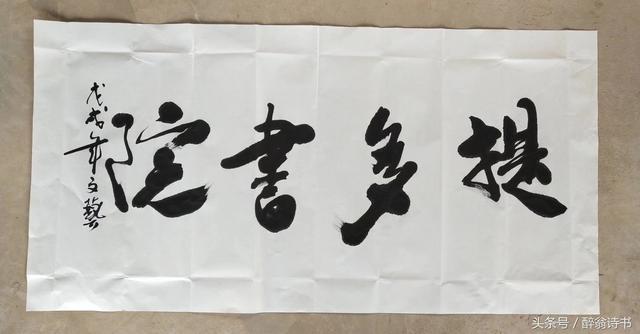 提多書院
戊戌年文藝
头条号/醉翁诗书